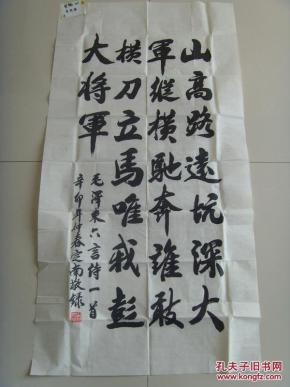 山高路遠坑深大
軍縱橫馳奔誰敢
横刀立馬唯我彭
大将軍
毛澤東六言詩一首
辛卯年仲春定南敬録
孔夫子旧书网